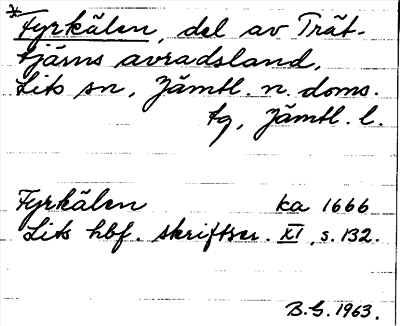 *Fyrkälen, del av Trät-
tjärns avradsland,
Lits sn, Jämtl. n. doms.
tg, Jämtl. l.
Fyrkälen ka 1666
Lits hbf. skriftser. XI, s. 132.
B.G. 1963.